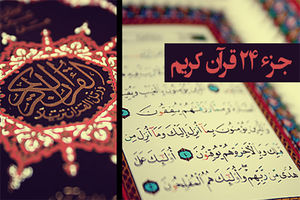 جزء ۲۴ قرآن کریم
القرآن الكريم
يُنفِقُونَ
يُؤْمِنُونَ بِمَا أُنزِلَ إِلَيْكَ وَمَا أُنزِلَ مِن
قَبْلِكَ وَبِالْآخِرَةِ هُمْ يُوقِنُونَ ٤ أُولَٰئِكَ عَلَىٰ
هُدًى مِّن رَّبِّهِمْ وَأُولَٰئِكَ هُمُ الْمُفْلِحُونَ ٥